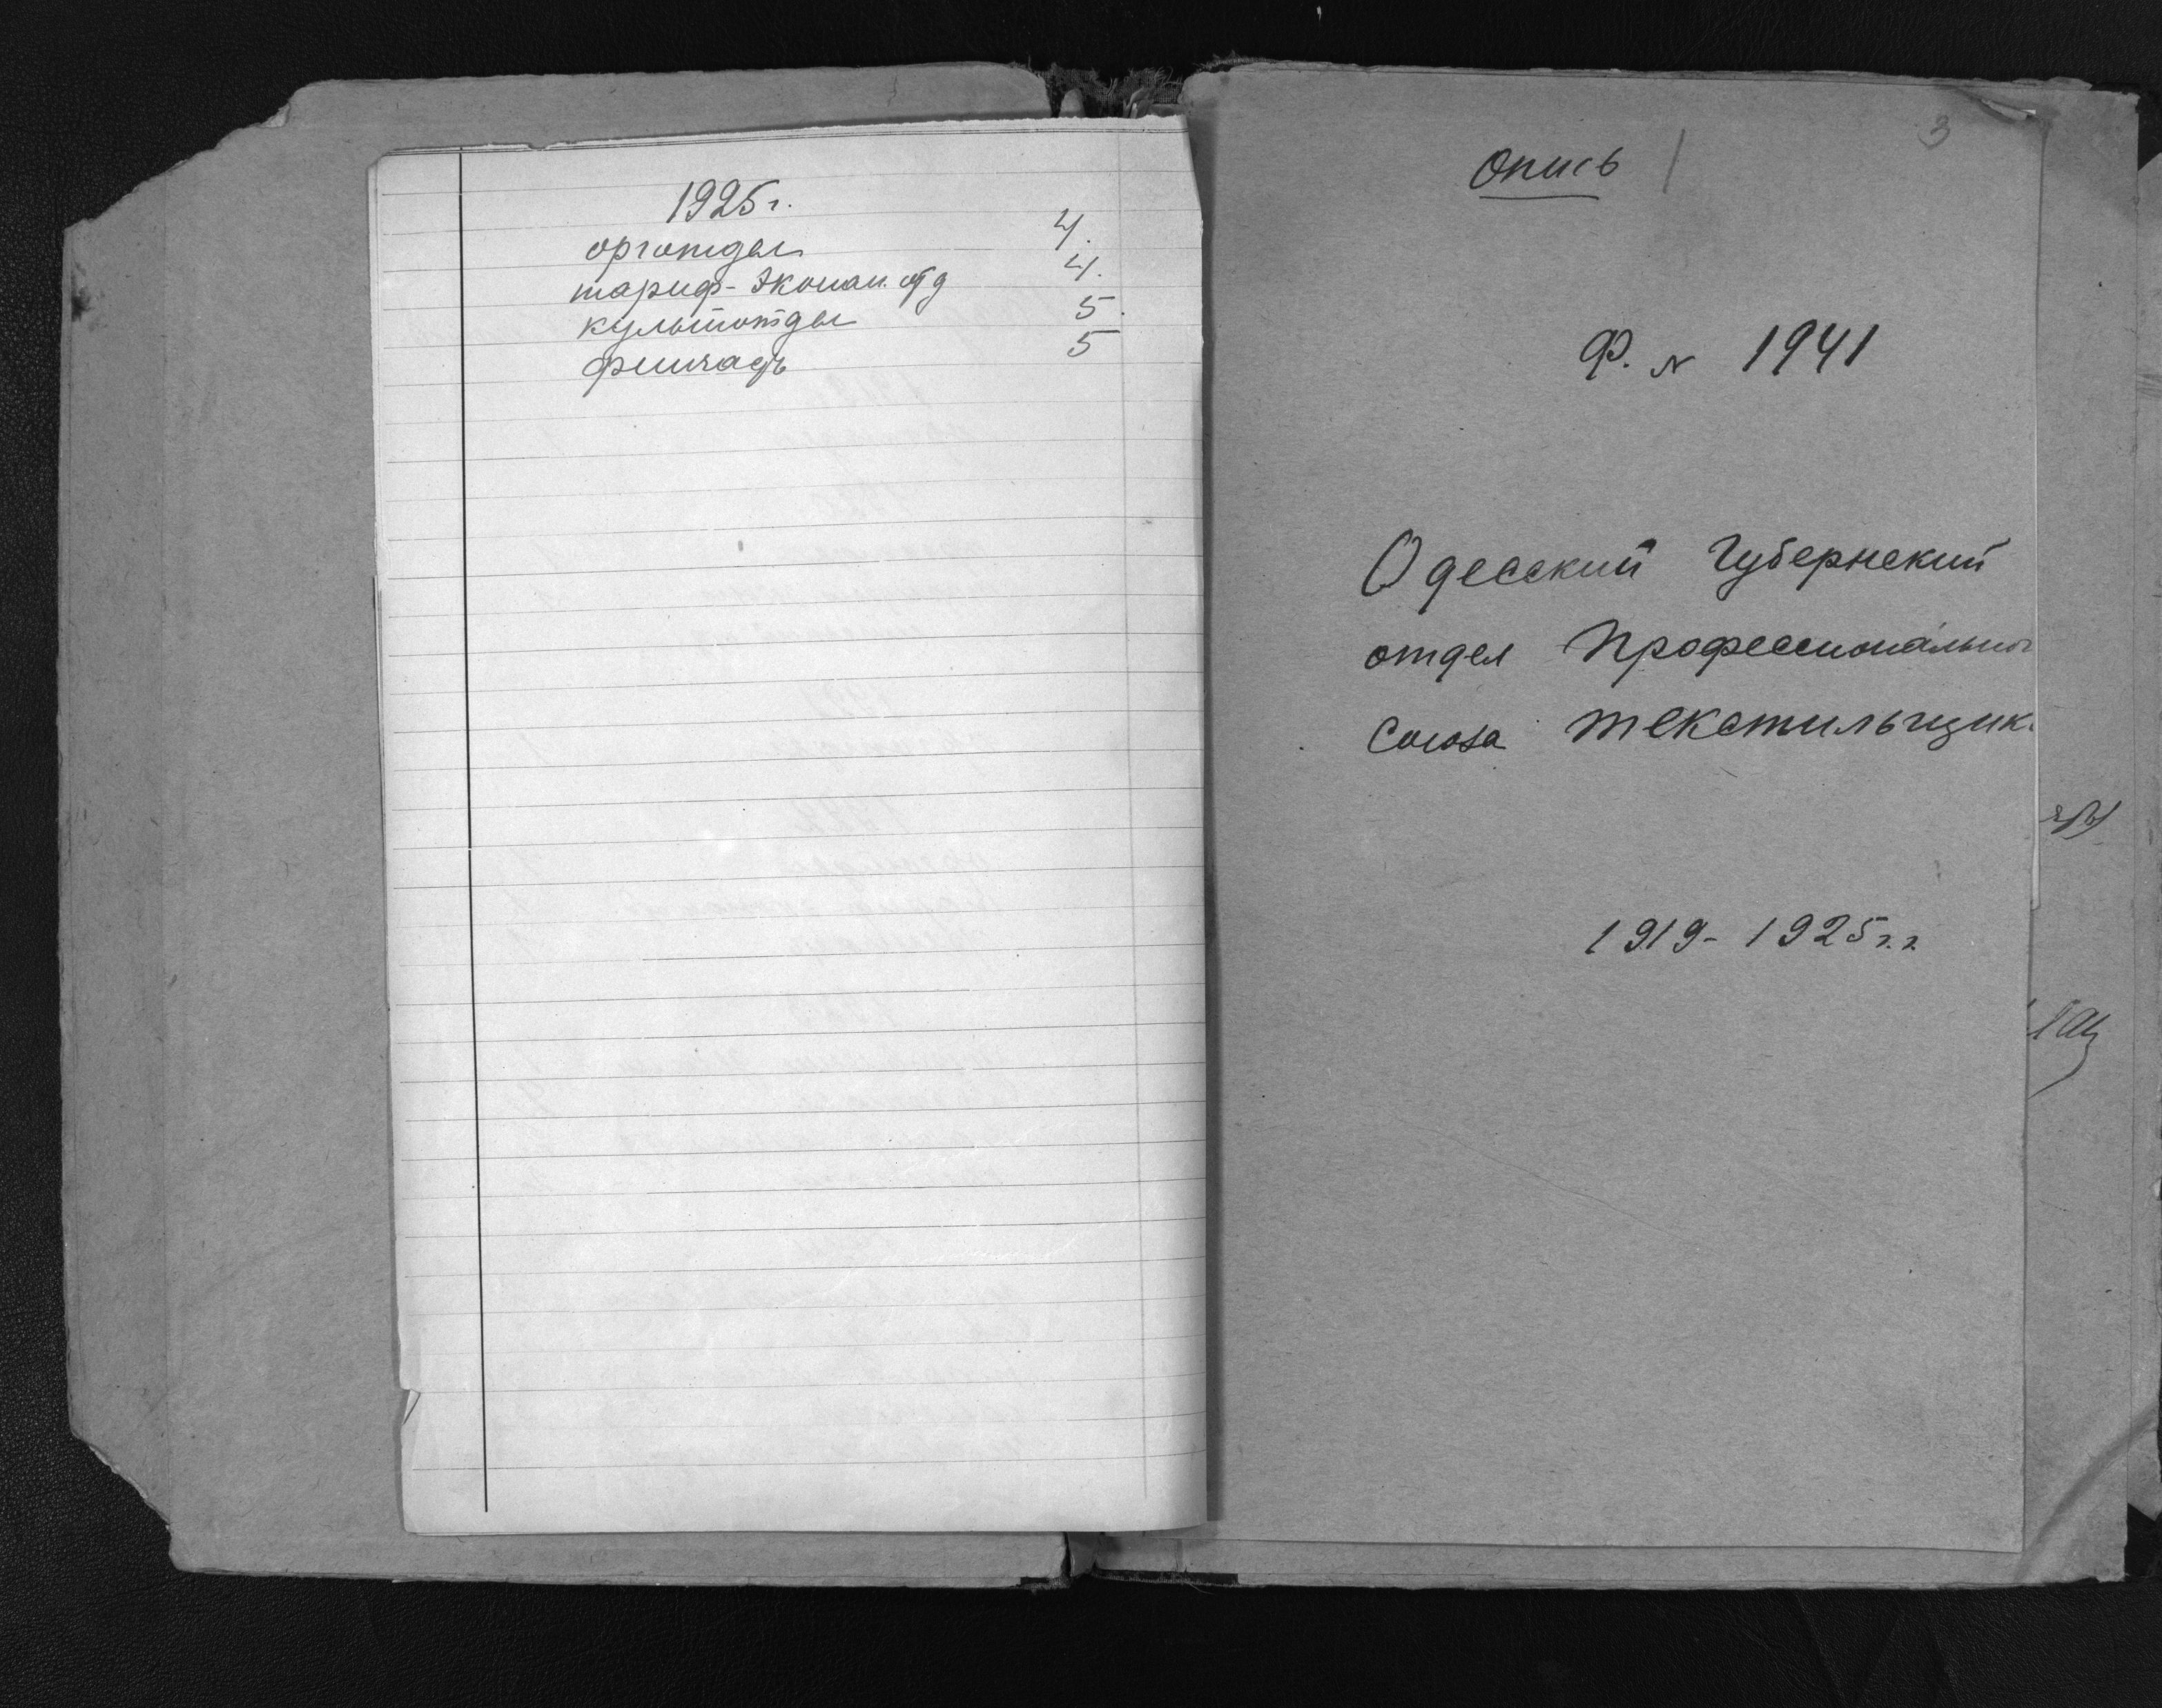 1925г.
орготдел 4.
тариф-эконом. отд 4.
культотдел 5.
финчасть 5
3
Опись 1
Ф. N 1941
Одесский Губернский
отдел Профессионально
Союза текстильщик
1919-1925г.г.